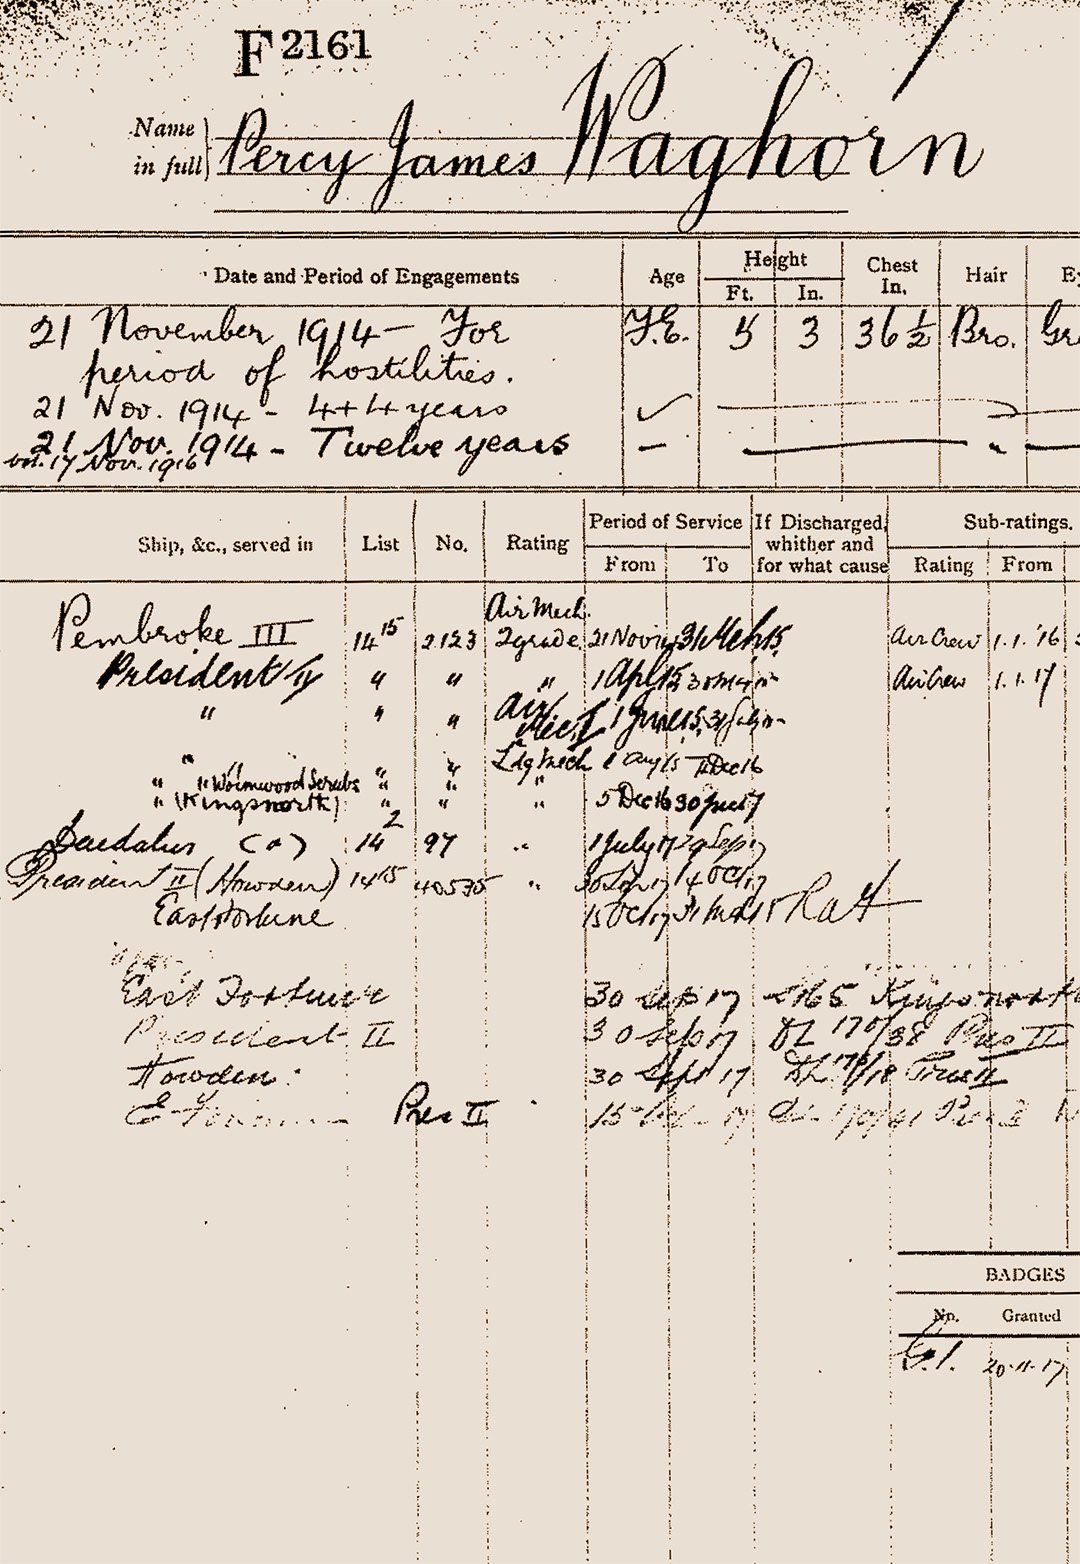 F 2161
Name in full } Percy James Waghorn
Date and Period of Engagements Age Height Ft. In. Chest In. Hair
21 November 1914 - For F.E. 5 3 36 1/2 Bro.
period of hostilities.
21 Nov. 1914 - 4+4 years
21 Nov. 1914 - Twelve years
vol. 17 Nov. 1916
Ship, &c., served in List No. Rating Period of Service From To If Discharged, whither and for what cause Sub-ratings. Rating From
Air Mech.
Pembroke III 14 15 2123 2 grade 21 Nov 14 31 Mch 15 Air Crew 1.1.'16
President II " " " 1 Apl 15 30 Air Crew 1.1.17
" " " Air Mec. I 1 June 15 31 July
" " Ldg Mech 1 Aug 15 Dec 16
" " Wormwood Scrubs " "
" (Kingsnorth) " " " 5 Dec 16 30 June 17
Daedalus (o) 14 2 97 " 1 July 17 29 Sep 17
President II (Howden) 14 15 40535 " 30 Sep 17 14 Oct 17
East Fortune 15 Oct 17 31 18 RAF
East Fortune 30 Sep 17 Kingsnorth
President II 30 Sep 17 DL 170/38 Pres II
Howden 30 Sept 17
Pres II
BADGES
No. Granted
G.1. 20.11.17